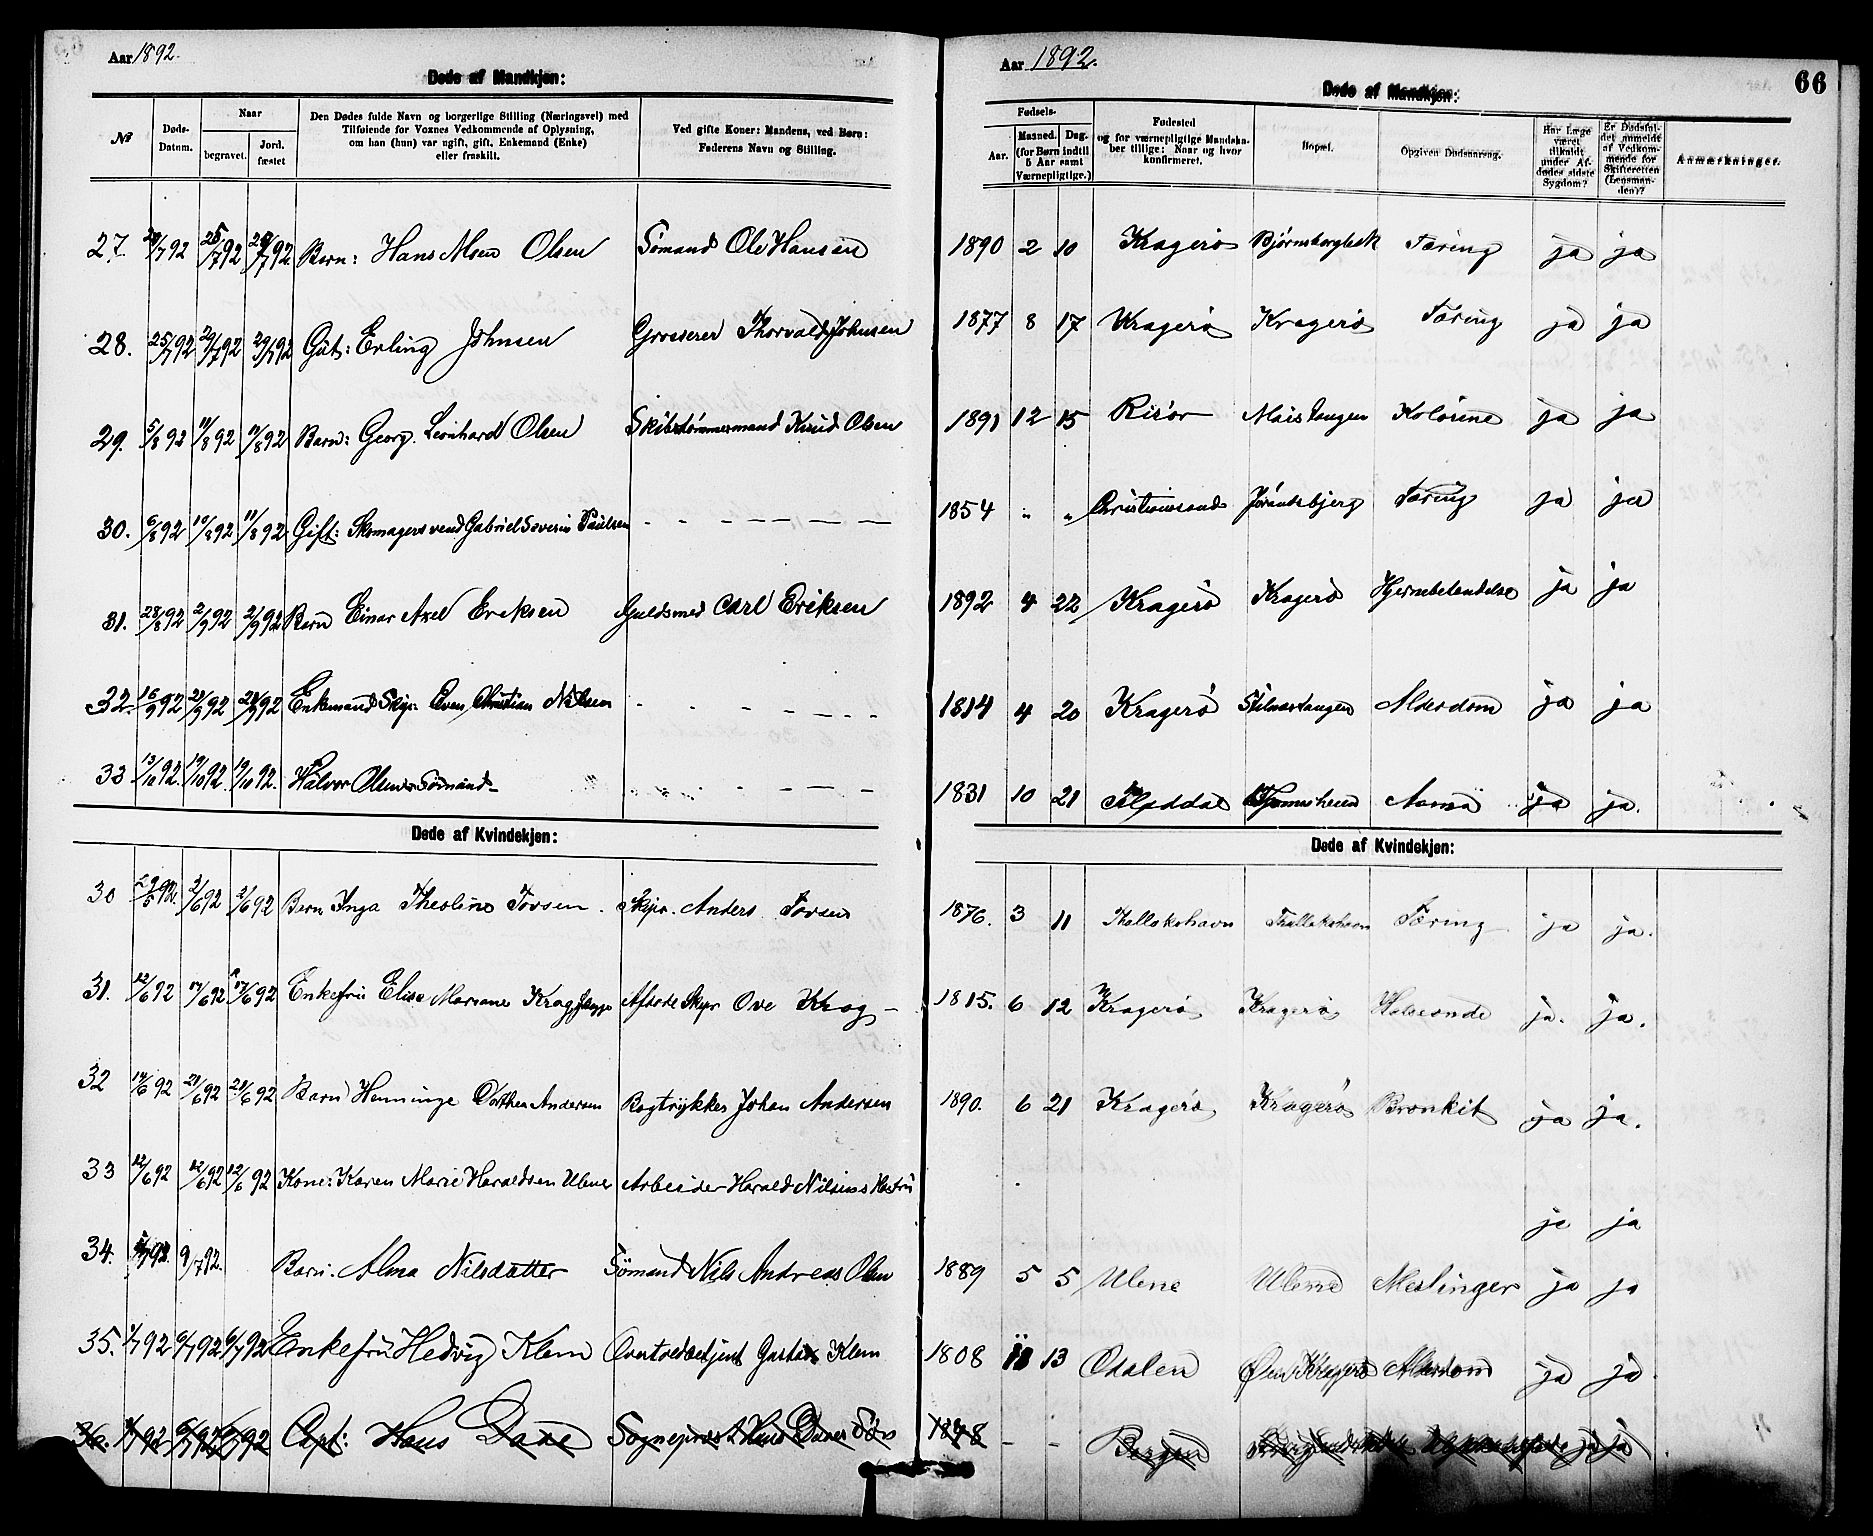 Aar 1892.
Døde af Mandkjøn:
No
Døds-Datum.
Naar
begravet.
Jord. fæstet
Den Dødes fulde Navn og borgerlige Stilling (Næringsvei) med
Tilføiende for Voxnes Vedkommende af Oplysning,
om han (hun) var ugift, gift, Enkemand (Enke)
eller fraskilt.
Ved gifte Koner: Mandens, ved Børn:
Faderens Navn og Stilling.
27. 25/7 92 29/7 92 Barn: Hans Olsen Sømand Ole Hansen
28. 25/7 92 29/7 92 29/7 92 Gut: Erling Johnsen Grosserer Thorvald Johnsen
29. 5/8 92 11/8 92 11/8 92 Barn: Georg Leonhard Olsen Skibstømmermand Knud Olsen
30. 6/8 92 10/8 92 11/8 92 Gift: Skomagersvend Gabriel Severin Paulsen - - - - - -
31. 28/8 92 2/9 92 2/9 92 Barn Einar Axel Eriksen Guldsmed Carl Eriksen
32. 16/9 92 21/9 92 21/9 92 Enkemand Skipr. Even Christian Nilsen - - - - - -
33 13/10 92. 19/10 92. 19/10 92. Halvor Olsen Sømand - - - - -
Døde af Kvindekjøn:
30 2/6 92 2/6 92 Barn Inga Theoline Tovsen. Skipr. Anders Tovsen
31. 12/6 92 17/6 92 17/6 92 Enkefru Elise Mariane Krog Afdøde Skipr Ove Krog -
32 14/6 92 21/6 92 21/6 92 Barn Henninge Dorthea Andersen Bogtrykker Johan Andersen
33 12/6 92 12/6 92 12/6 92 Kone: Karen Marie Haraldsen Ulene Arbeider Harald Nilsens Hustru
34. 9/7 92. Barn: Alma Nilsdatter Sømand Nils Andreas Olsen
35. 1/7 92 6/7 92 6/7 92 Enkefru Hedvig Klem Overtoldbetjent Gustav Klem
36. 1/7 92 6/7 92 6/7 92 Capt: Hans Daae Sogneprest Hans Daaes Søn
Aar 1892.
Døde af Mandkjøn:
66
Fødsels-
Aar.
Maaned. Dag.
(for Børn indtil
5 Aar samt
Værnepligtige.)
Fødested
og for værnepligtige Mandska-
ber tillige: Naar og hvor
konfirmeret.
Bopæl.
Opgiven Dødsaarsag.
Har Læge
været
tilkaldt
under Af-
dødes sidste
Sygdom?
Er Dødsfal-
det anmeldt
af Vedkom-
mende for
Skifteretten
(Lensman-
den)?
Anmærkninger.
1890 2 10 Kragerø Bjørnsborgbek Tæring ja ja
1877 8 17 Kragerø Kragerø Tæring ja ja
1891 12 15 Risør Kolerine ja ja
1854 " " Christianssand Jørandsbjerg Tæring ja ja
1892 4 22 Kragerø Kragerø Hjernebetændelse ja ja
1814 4 20 Kragerø Stilnestangen Alderdom ja ja
1831 10 21 Asma ja ja.
Døde af Kvindekjøn:
1876. 3 11 Thallakshavn Thallakshavn Tæring ja ja.
1815. 6 12 Kragerø Kragerø Halsonde ja. ja.
1890. 6 21 Kragerø Kragerø Bronkit ja ja.
ja ja
1889 5 5 Ulene Ulene Meslinger ja ja
1808 13 Odalen Øen Kragerø Alderdom ja ja
1848 - - Bergen ja ja